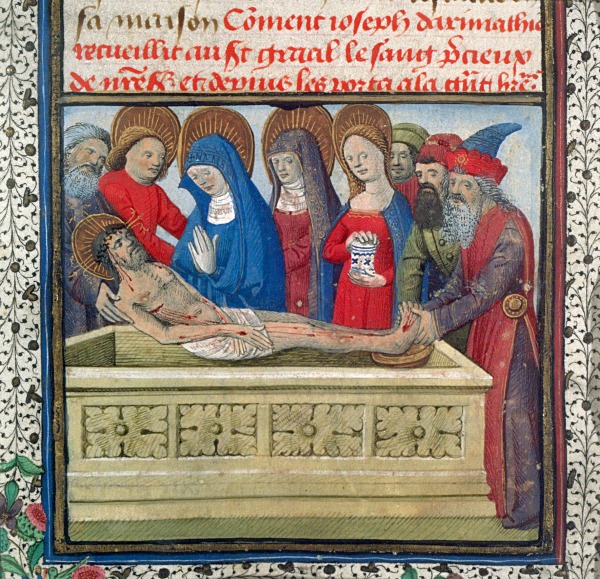 sa maison Cõment ioseph darimathie
recueillit au st graal le sang p̃cieux
de nr̃e et depuis les porta a la gñt